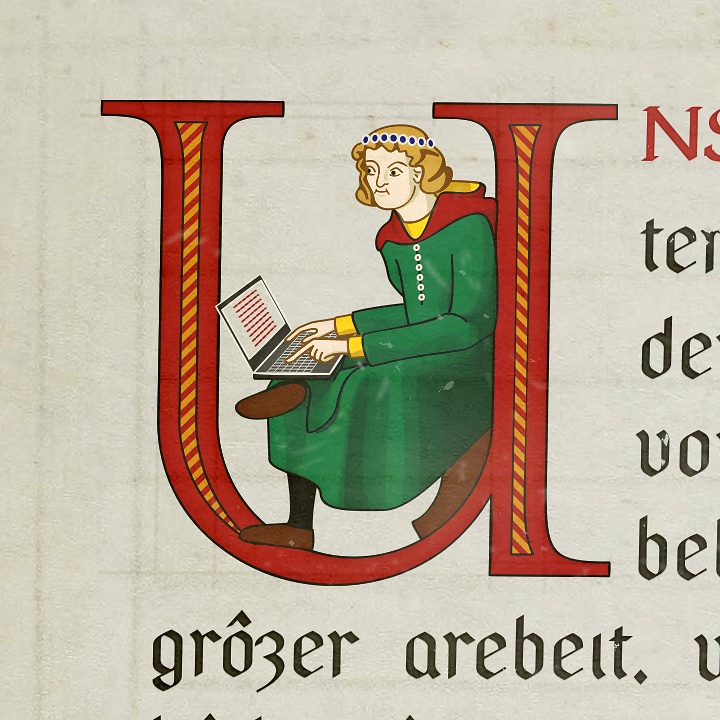 UNS
ter
de
vo
bel
grôʒer arebeit. v